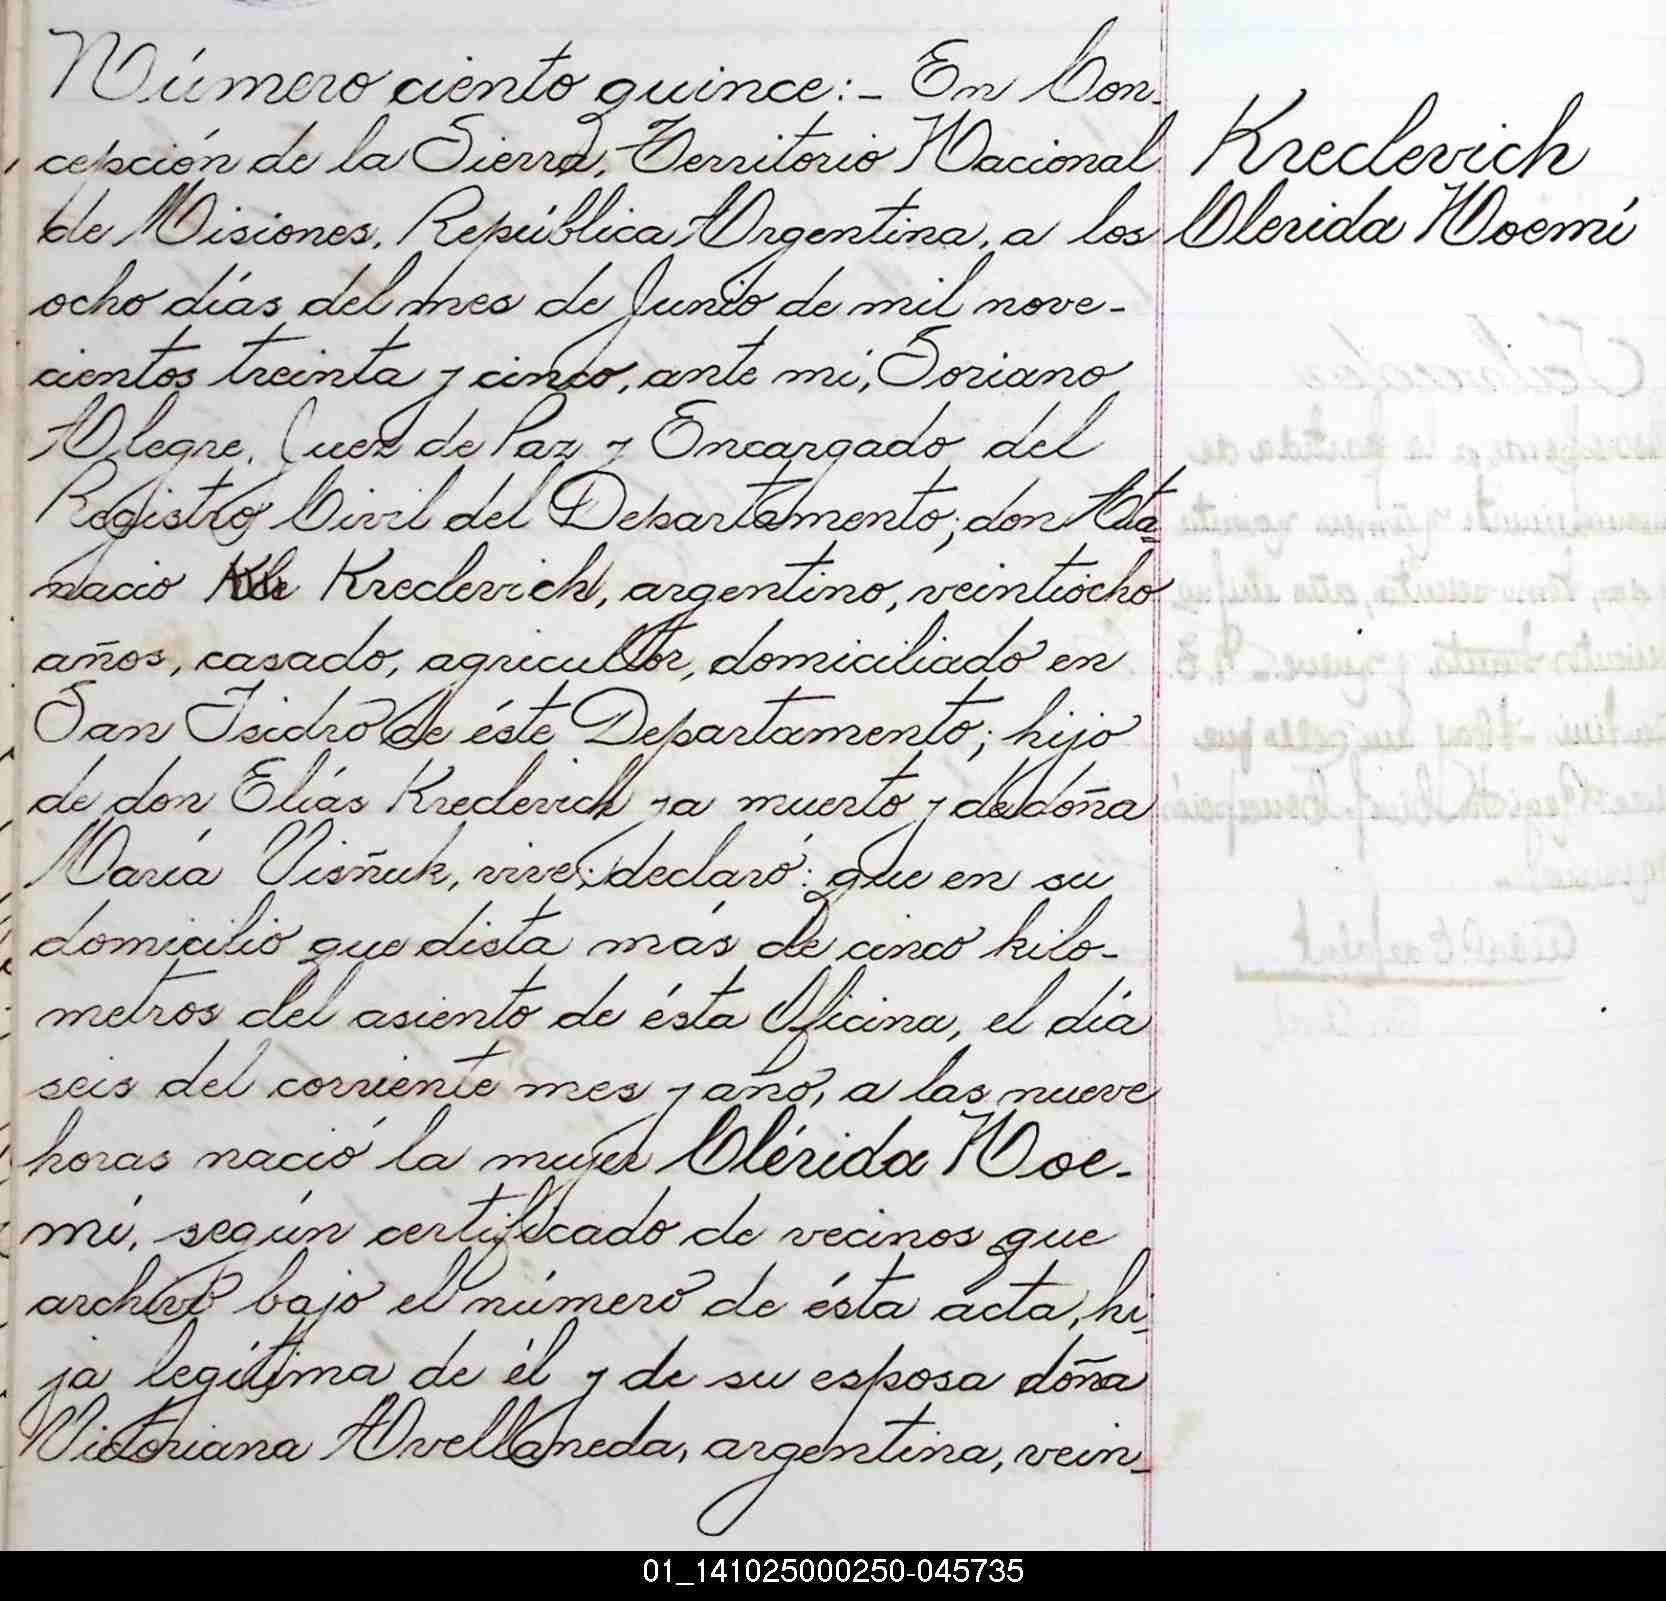 Número ciento quince:- En Con-
cepción de la Sierra, Territorio Nacional
de Misiones, República Argentina, a los
ocho días del mes de Junio de mil nove-
cientos treinta y cinco, ante mi, Soriano
Alegre, Juez de Paz y Encargado del
Registro Civil del Departamento; don Ata-
nacio Kreclevich, argentino, veintiocho
años, casado, agricultor, domiciliado en
San Isidro de éste Departamento; hijo
de don Elías Kreclevich ya muerto y de doña
María Visñuk, vive; declaró: que en su
domicilio que dista más de cinco kiló-
metros del asiento de ésta Oficina, el día
seis del corriente mes y año, a las nueve
horas nació la mujer Clérida Noe-
mí, según certificado de vecinos que
archivo bajo el número de ésta acta, hi-
ja legítima de él y de su esposa doña
Victoriana Avellaneda, argentina, vein-
Kreclevich
Clerida Noemí
01_141025000250-045735